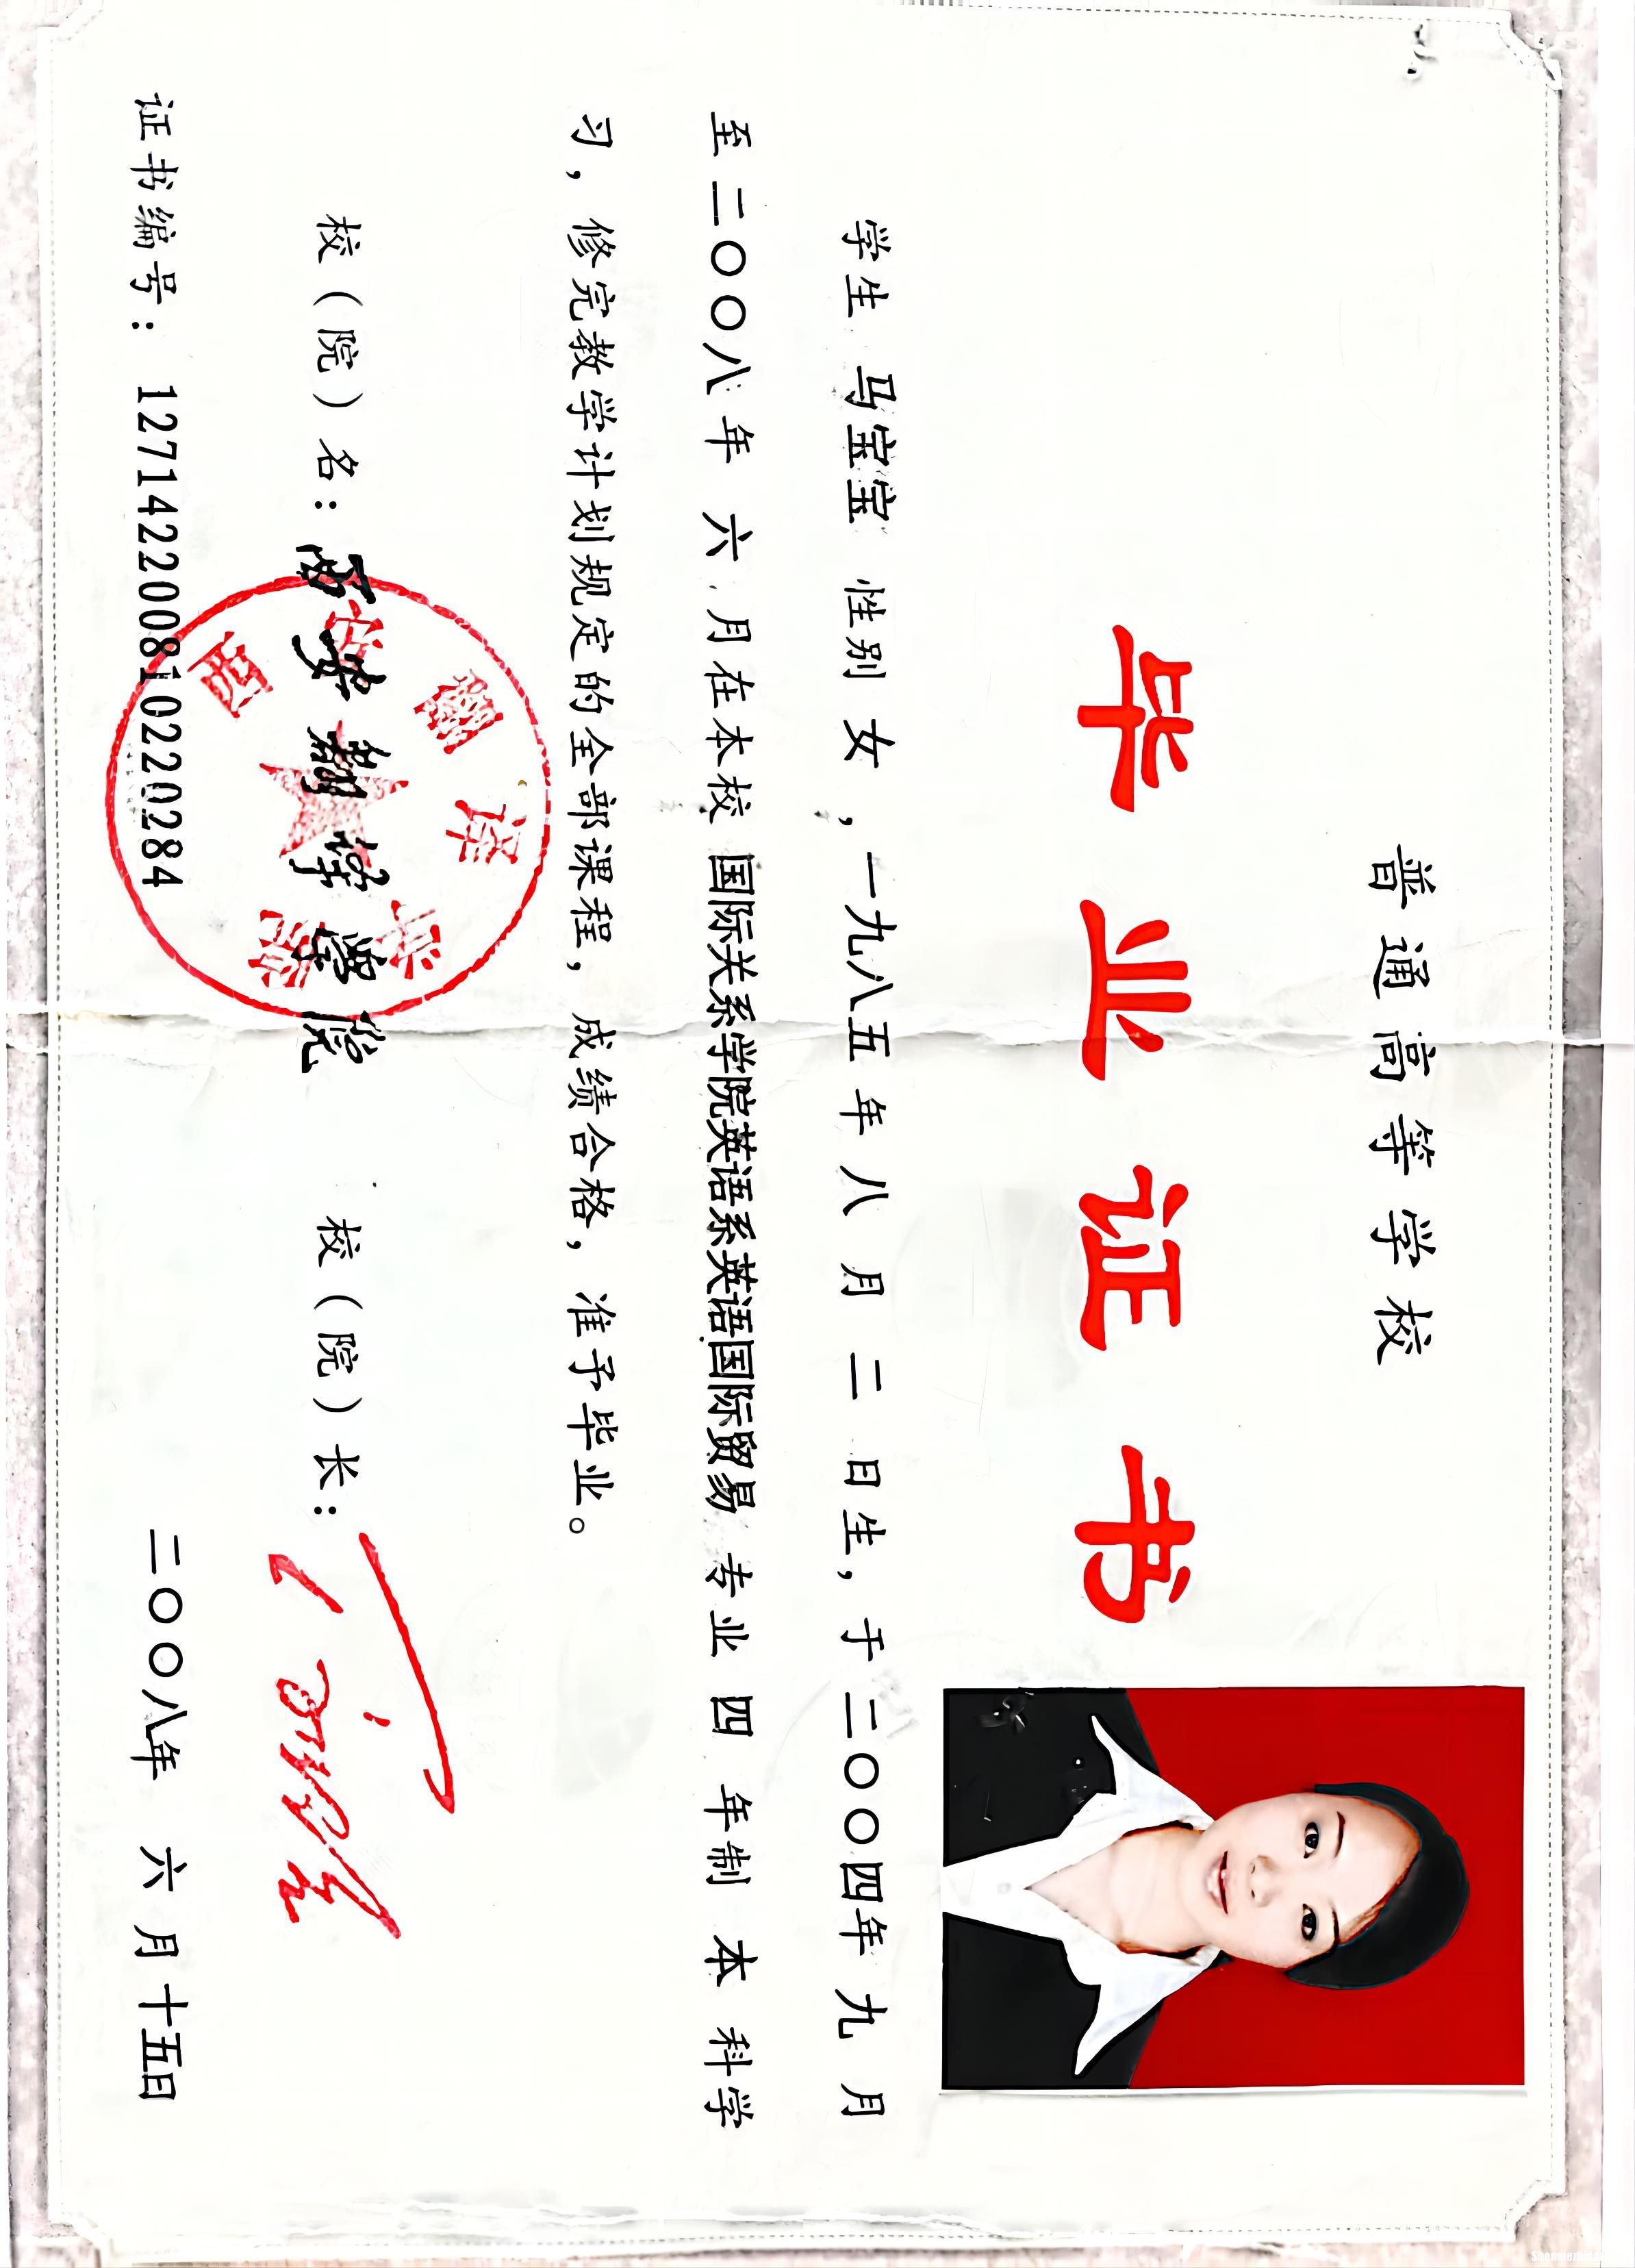 普通高等学校
毕业证书
学生 马宝宝 性别 女，一九八五年 八 月 二 日生，于 二〇〇四年 九 月
至 二〇〇八年 六 月在本校 国际关系学院英语系英语国际贸易 专业 四 年制 本 科学
习，修完教学计划规定的全部课程，成绩合格，准予毕业。
校（院）名：西安翻译学院 校（院）长：
西安翻译学院
证书编号：127142200810220284 二〇〇八年 六 月 十五日